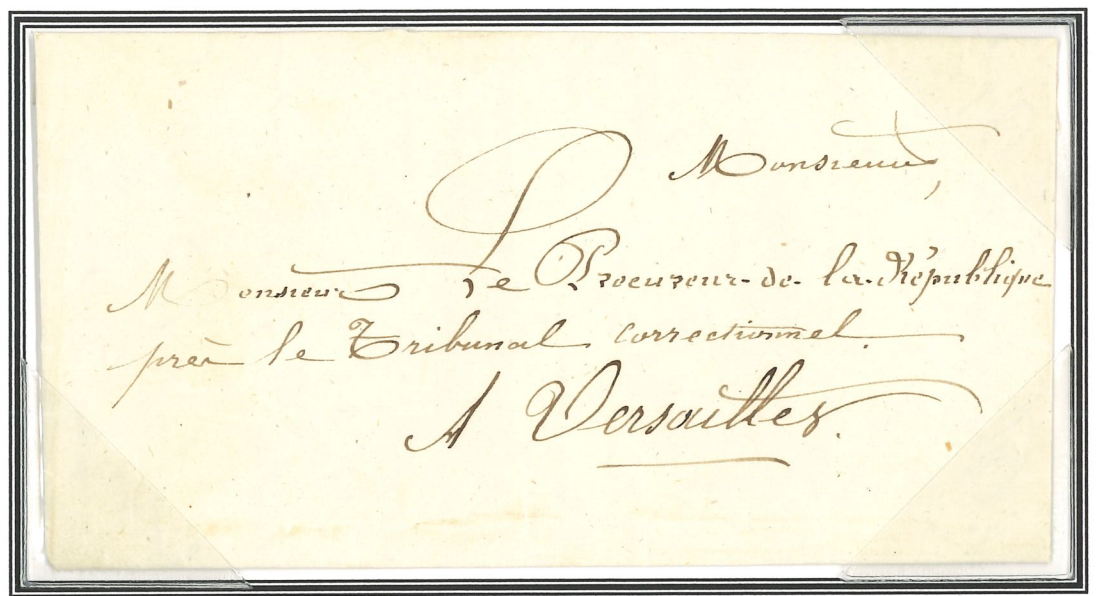 Monsieur,
Monsieur Le Procureur-de-la-République
près le Tribunal correctionnel.
A Versailles.